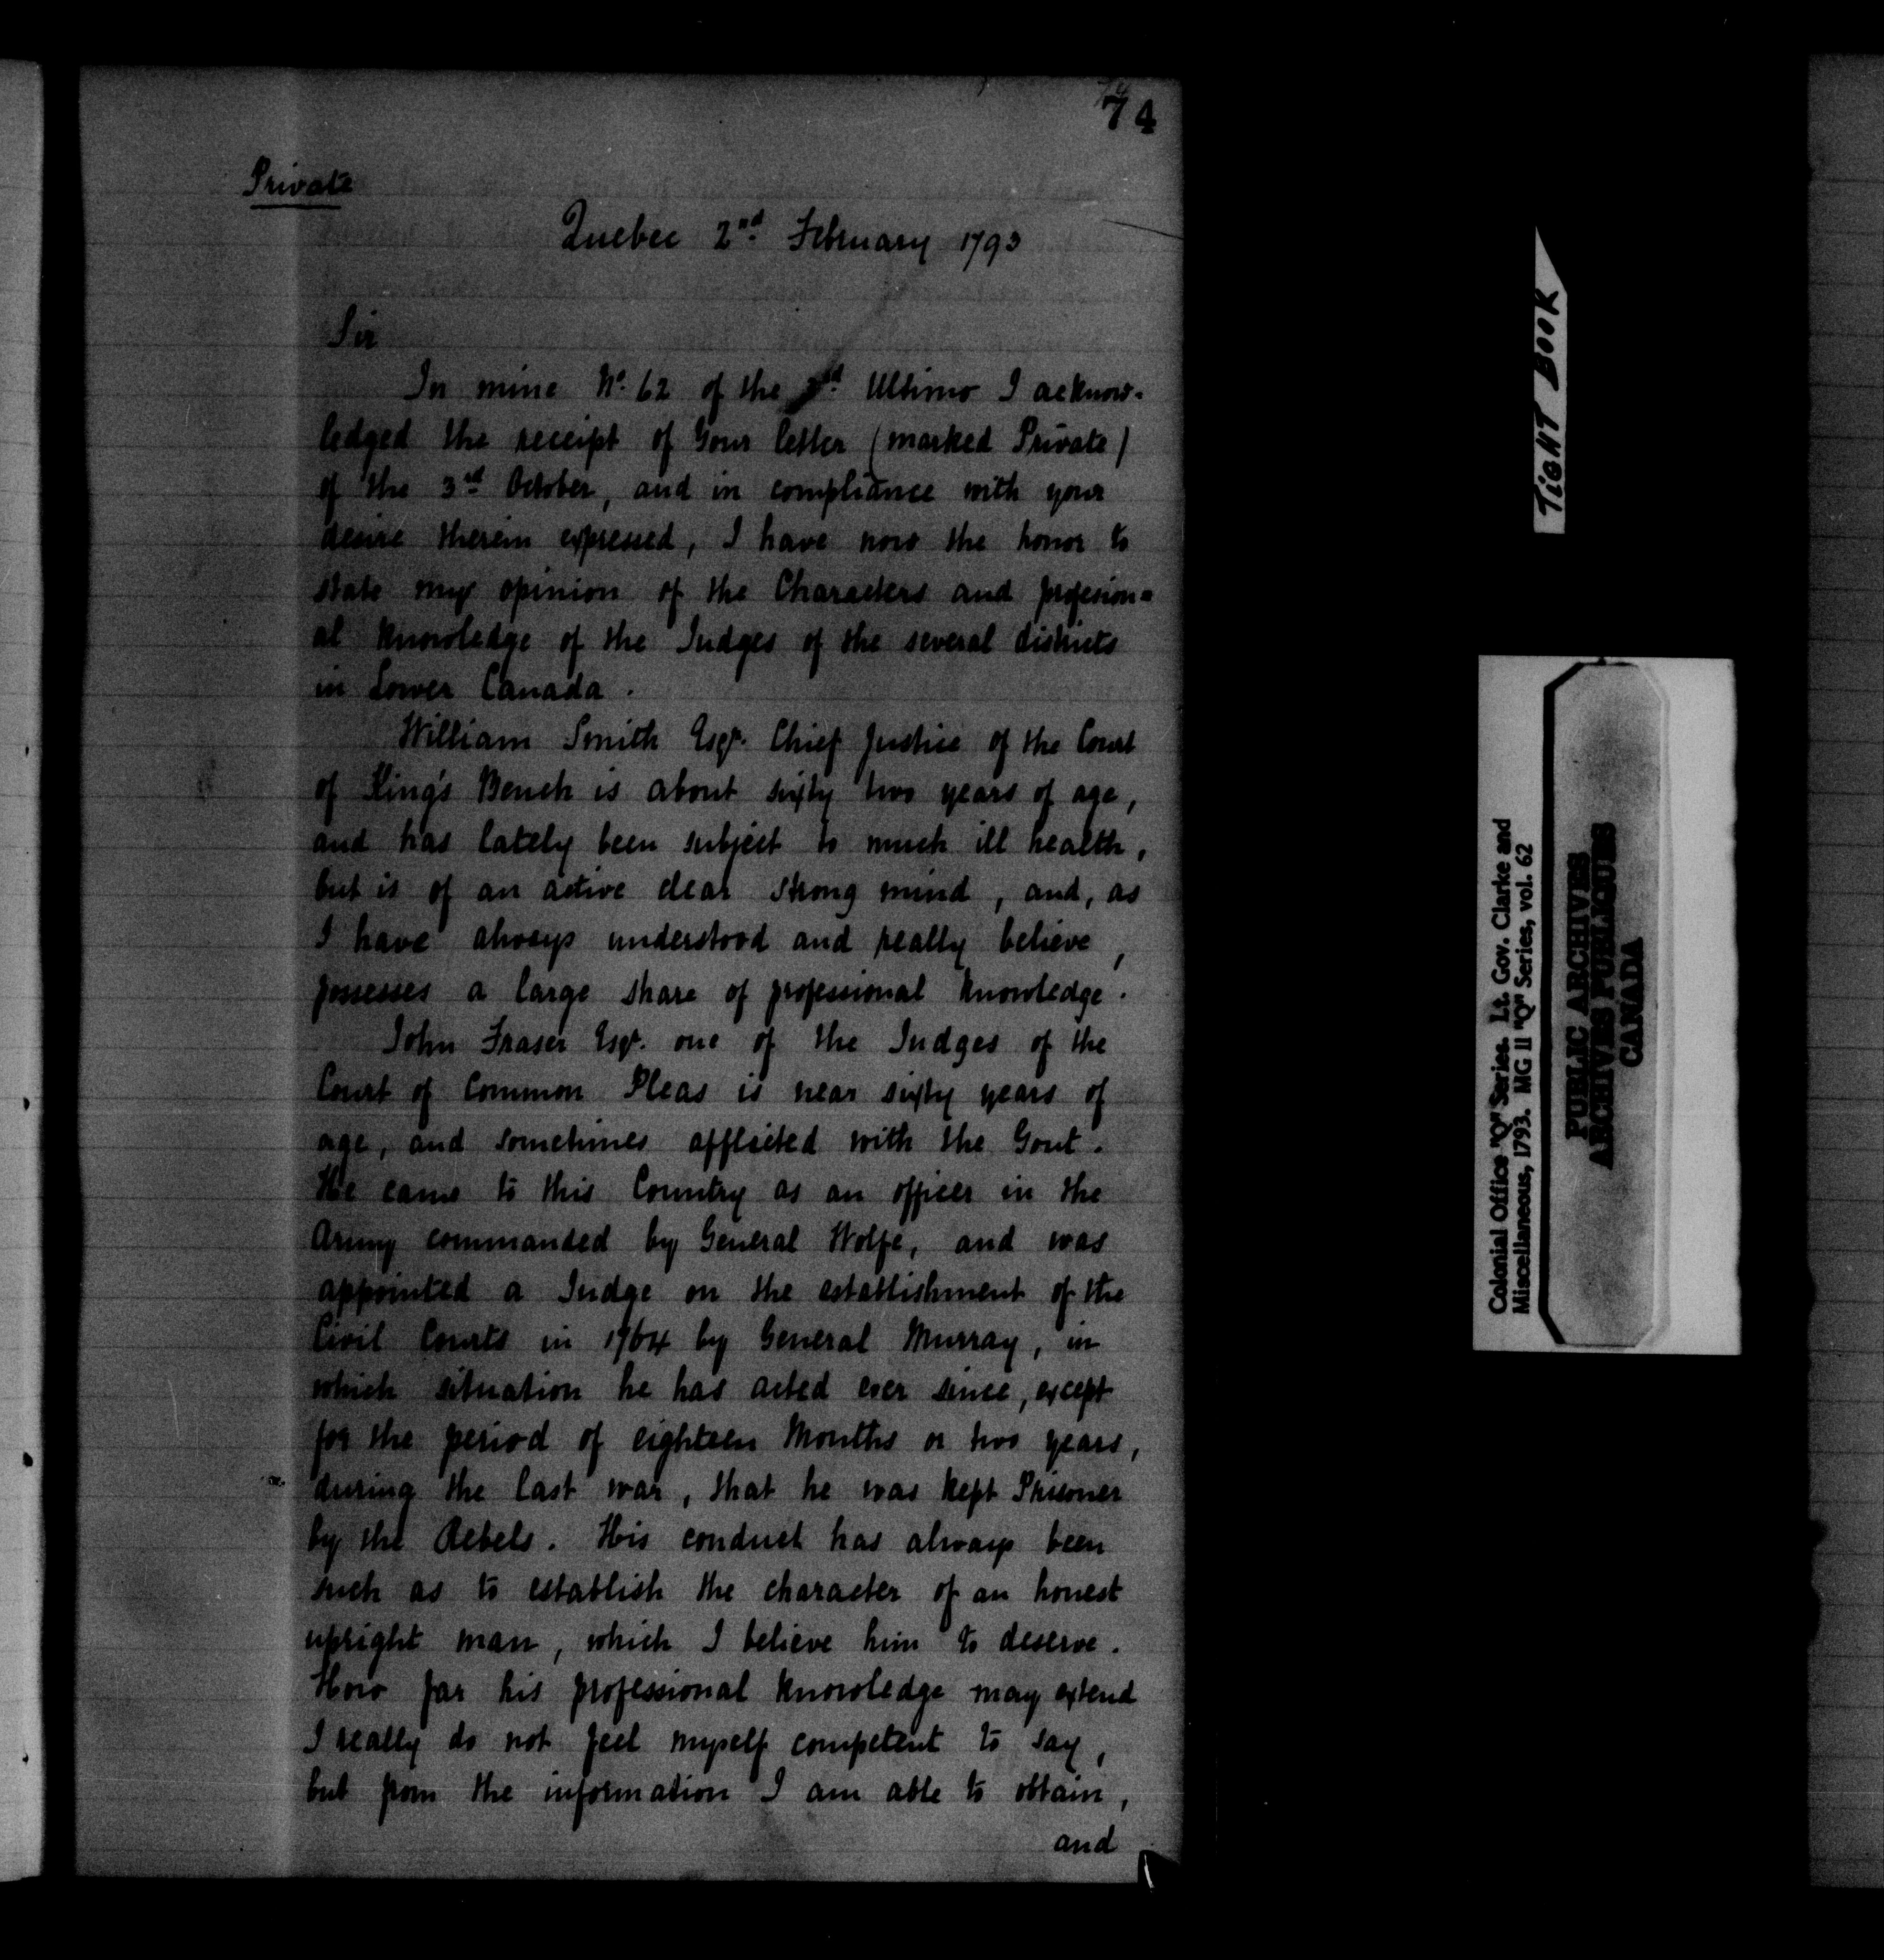 74
Private
Quebec 2nd February 1793
Sir
In mine No. 62 of the Ultimo I acknow-
ledged the receipt of Your letter (marked Private)
of the 3rd October, and in compliance with your
desire therein expressed, I have now the honor to
state my opinion of the Characters and profession=
al knowledge of the Judges of the several districts
in Lower Canada.
William Smith Esqr. Chief Justice of the Court
of King's Bench is about sixty two years of age,
and has lately been subject to much ill health,
but is of an active clear strong mind, and, as
I have always understood and really believe,
possesses a large share of professional knowledge.
John Fraser Esqr. one of the Judges of the
Court of Common Pleas is near sixty years of
age, and sometimes afflicted with the Gout.
He came to this Country as an officer in the
Army commanded by General Wolfe, and was
appointed a Judge on the establishment of the
Civil Courts in 1764 by General Murray, in
which situation he has acted ever since, except
for the period of eighteen Months or two years,
during the last war, that he was kept Prisoner
by the Rebels. His conduct has always been
such as to establish the character of an honest
upright man, which I believe him to deserve.
How far his professional knowledge may extend
I really do not feel myself competent to say,
but from the information I am able to obtain,
and
TIGHT BOOK
Colonial Office "Q" Series. Lt. Gov. Clarke and
Miscellaneous, 1793. MG 11 "Q" Series, vol. 62
PUBLIC ARCHIVES
ARCHIVES PUBLIQUES
CANADA